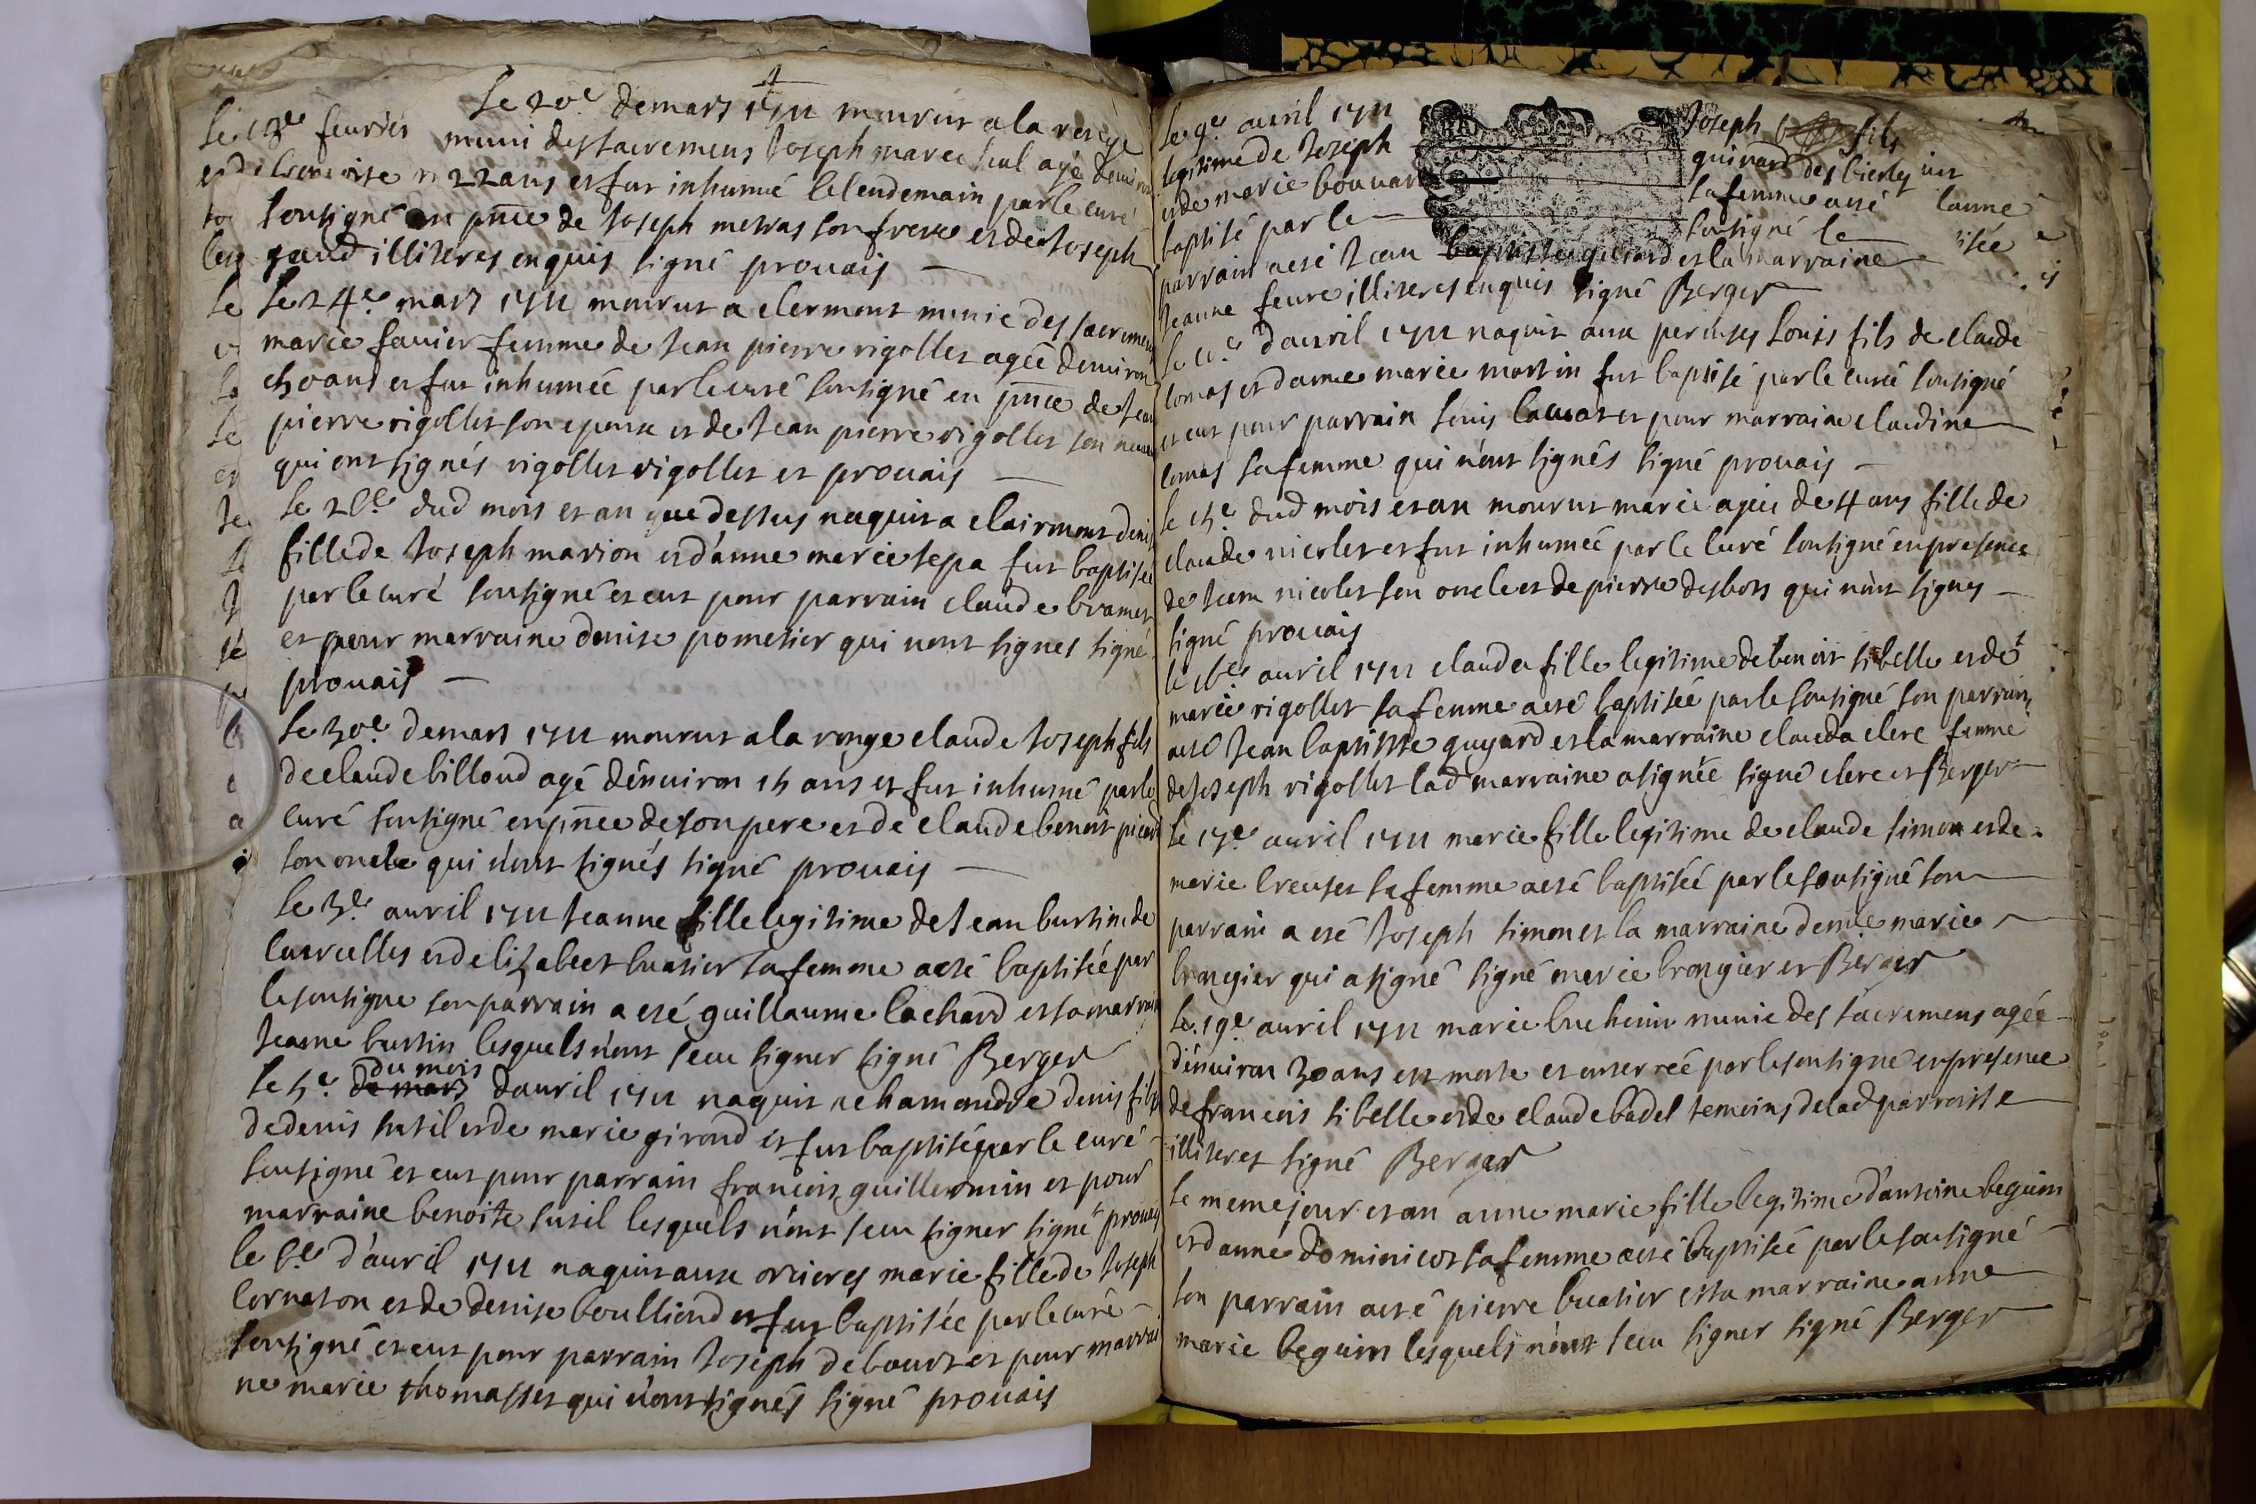 Le 20e de mars 1711 mourut a la verge
muni des sacremens Joseph marechal agé denviron
22 ans et fut inhumé le lendemain par le curé
soussigné en pnce de Joseph metras son frere et de Joseph
gaud illiteres enquis signé prouais
le 24e mars 1711 mourut a clermont munie des sacremens
marie fauier femme de Jean pierre rigollet agée denviron
ans et fut inhumée par le curé soussigné en pnce de Jean
pierre rigollet son epoux et de Jean pierre rigollet son neveu
qui ont signés rigollet rigollet et prouais
le 26e dud mois et an que dessus naquit a clairmont denise
fille de Joseph marion et d'anne marie sepa fut baptisée
par le curé soussigné et eut pour parrain claude bramet
et pour marraine denise pometier qui nont signes signé
prouais
le 30e de mars 1711 mourut a la verge claude Joseph fils
de claude billoud agé d'environ 15 ans et fut inhumé par le
curé soussigné en pnce de son pere et de claude benoit picard
son oncle qui n'ont signés signé prouais
le 3e auril 1711 Jeanne fille legitime de Jean burtin de
lucelles et d'elizabeet buatier sa femme a eté baptisée par
le soussigne son parrain a eté guillaume lachard et sa marraine
Jeanne burtin lesquels n'ont sceu signer signé Berger
le 5e de mars du mois dauril 1711 naquit a chamandre denis fils
de denis sutil et de marie girond et fut baptisé par le curé
soussigné et eut pour parrain francois guillermin et pour
marraine benoite sutil lesquels n'ont sceu signer signé prouais
le 6e d'auril 1711 naquit aux orcieres marie fille de Joseph
cornaton et de denise boulliond et fut baptisée par le curé
soussigné et eut pour parrain Joseph debourt et pour marrai
ne marie thomasset qui n'ont signés signé prouais
le 13e feurier
le 9e auril 1711 Joseph fils
legitime de Joseph guirard des bierles
et de marie bouuard sa femme a eté
baptisé par le soussigné le
parrain a eté Jean baptiste guirard et la marraine
Jeanne feure illiteres enquis signé Berger
le 11e d'auril 1711 naquit aux perouses Louis fils de claude
comas et danne marie martin fut baptisé par le curé soussigné
et eut pour parrain Louis lacuat et pour marraine claudine
comas sa femme qui n'ont signés signé prouais
le 15e dud mois et an mourut marie agée de 4 ans fille de
claude nicolet et fut inhumée par le curé soussigné en presence
de Jean nicolet son oncle et de pierre desbos qui n'ont signes
signé prouais
le 16e auril 1711 clauda fille legitime de benoit sibelle et de
marie rigollet sa femme a eté baptisée par le soussigné son parrain
a eté Jean baptiste guyard et la marraine clauda clerc femme
de Joseph rigollet lad marraine a signée signé clerc et Berger
le 17e auril 1711 marie fille legitime de claude simon et de
marie creuset sa femme a eté baptisée par le soussigné son
parrain a eté Joseph simon et la marraine demle marie
brangier qui a signé signé marie brangier et Berger
le 19e auril 1711 marie buchenin munie des sacremens agée
d'enuiron 30 ans est morte et enterrée par le soussigné en presence
de francois sibelle et de claude badel temoins de lad parroisse
illiteres signé Berger
le meme jour et an anne marie fille legitime d'antoine beguin
et danne dominicot sa femme a eté baptisée par le soussigné
son parrain a eté pierre buatier et sa marraine anne
marie beguin lesquels n'ont sceu signer signé Berger